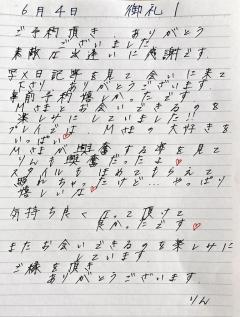 6月4日 御礼1
ご予約頂き、ありがとう
ございました
素敵な出逢いに感謝です.
写メ日記等を見て会いに来て
下さり、ありがとうございます.
事前予約嬉しかったです
Mさまとお会いできるのを
楽しみにしていました!!
プレイでは、Mさまの大好きを
いっぱい♡
Mさまが興奮する事を見て
りんも興奮だったよ♡
スタイルも ほめてもらえて
照れちゃったけど…やっぱり
嬉しいな♡
気持ち良くなって頂けて
良かったです♡
またお会いできるのを楽しみに
しています
ご縁を頂き
ありがとうございます
りん